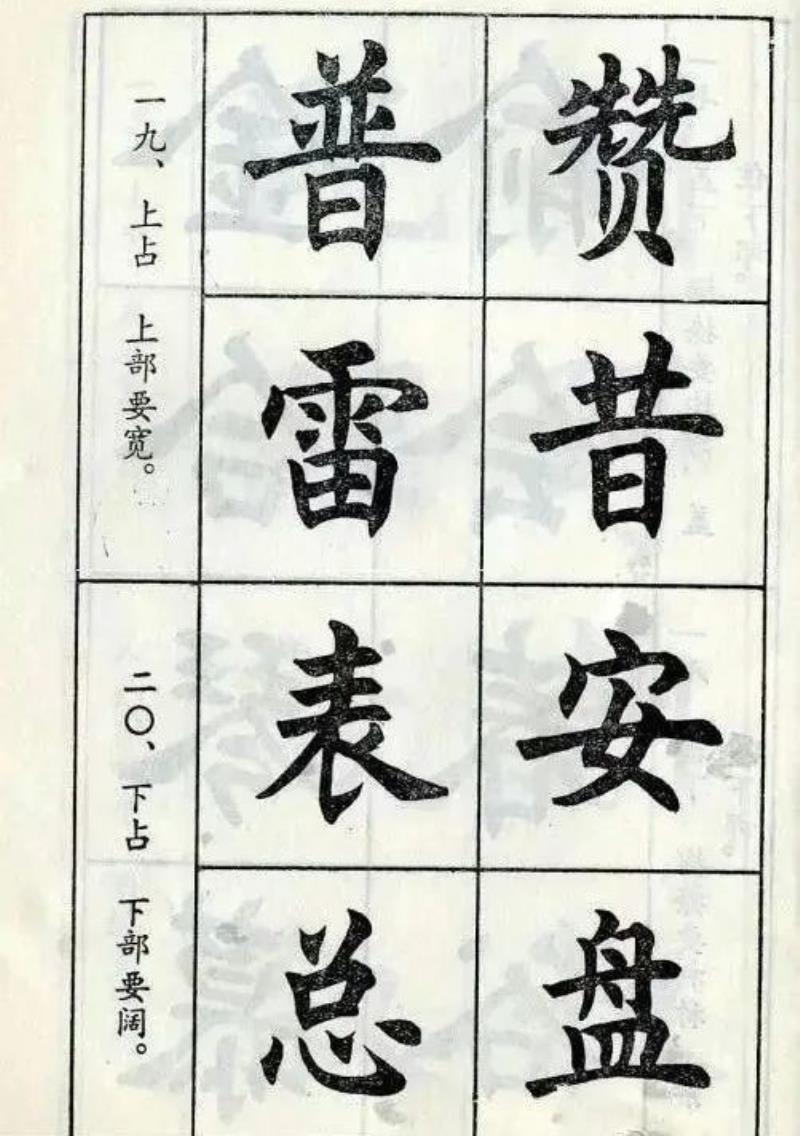 一九、上占
上部要宽。
普
赞
雷
昔
二〇、下占
下部要阔。
表
安
总
盘